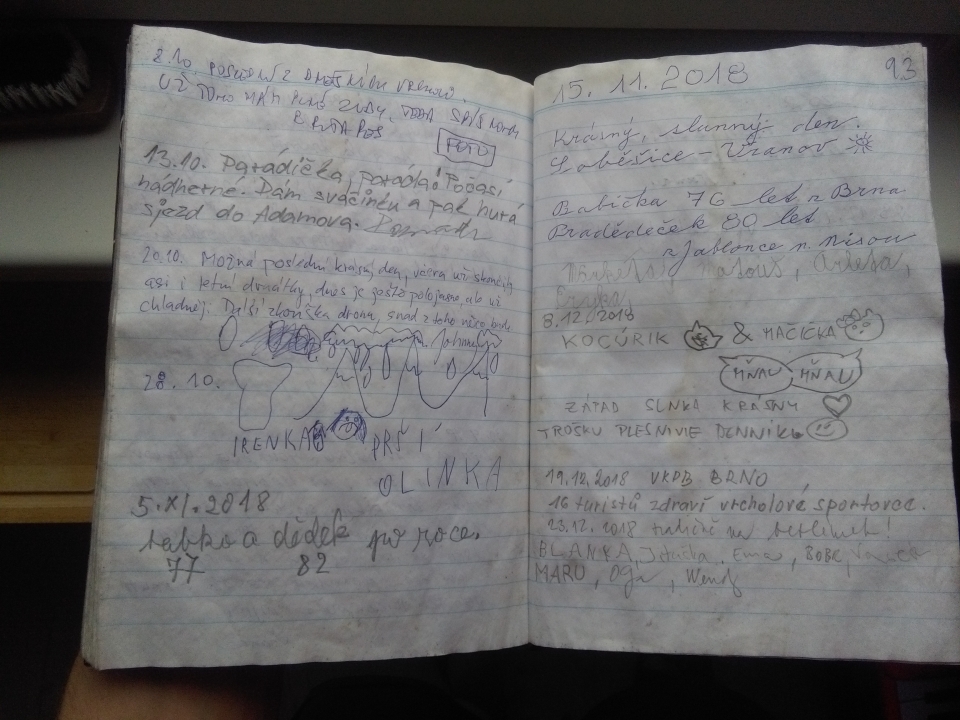 2.10
UŽ TOHO MÁM PLNÉ ZUBY,
FOTO
13.10. Parádička, paráda! Počasí
nádherné. Dám svačinku a pak hurá
sjezd do Adamova.
20.10. Možná poslední krásný den, včera už skončily
asi i letní drnátky, dnes je ještě polojasno, ale už
chladněj. Další zkouška dronu, snad z toho něco bude
28.10.
IRENKA PRŠÍ
OLINKA
5.XI.2018
babko a dědek po roce.
77 82
93
15. 11. 2018
Krásný, slunný den.
Soběšice - Vranov
Babička 76 let z Brna
Pradědeček 80 let
z Jablonce n. Nisou
Matouš,
8.12.2018
KOCÚRIK & MAČIČKA
MŇAU MŇAU
ZÁPAD SLNKA KRÁSNY
TROŠKU PLESNIVIE DENNÍK
19.12.2018 VKPB BRNO
16 turistů zdraví vrcholové sportovce.
23.12.2018
BLANKA, Jituška, Ema, BOBR,
MARU, Oga, Wendy